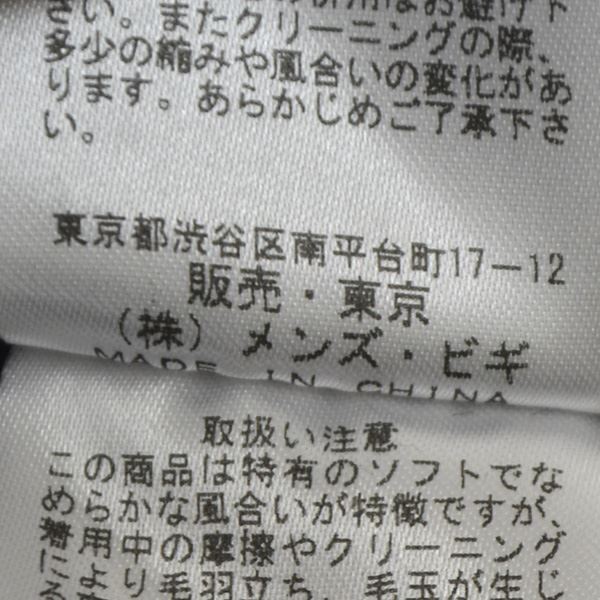 さい。またクリーニングの際、
多少の縮みや風合いの変化があ
ります。あらかじめご了承下さ
い。
東京都渋谷区南平台町17-12
販売・東京
(株)メンズ・ビギ
MADE IN CHINA
取扱い注意
この商品は特有のソフトでな
めらかな風合いが特徴ですが、
着用中の摩擦やクリーニング
により毛羽立ち、毛玉が生じ